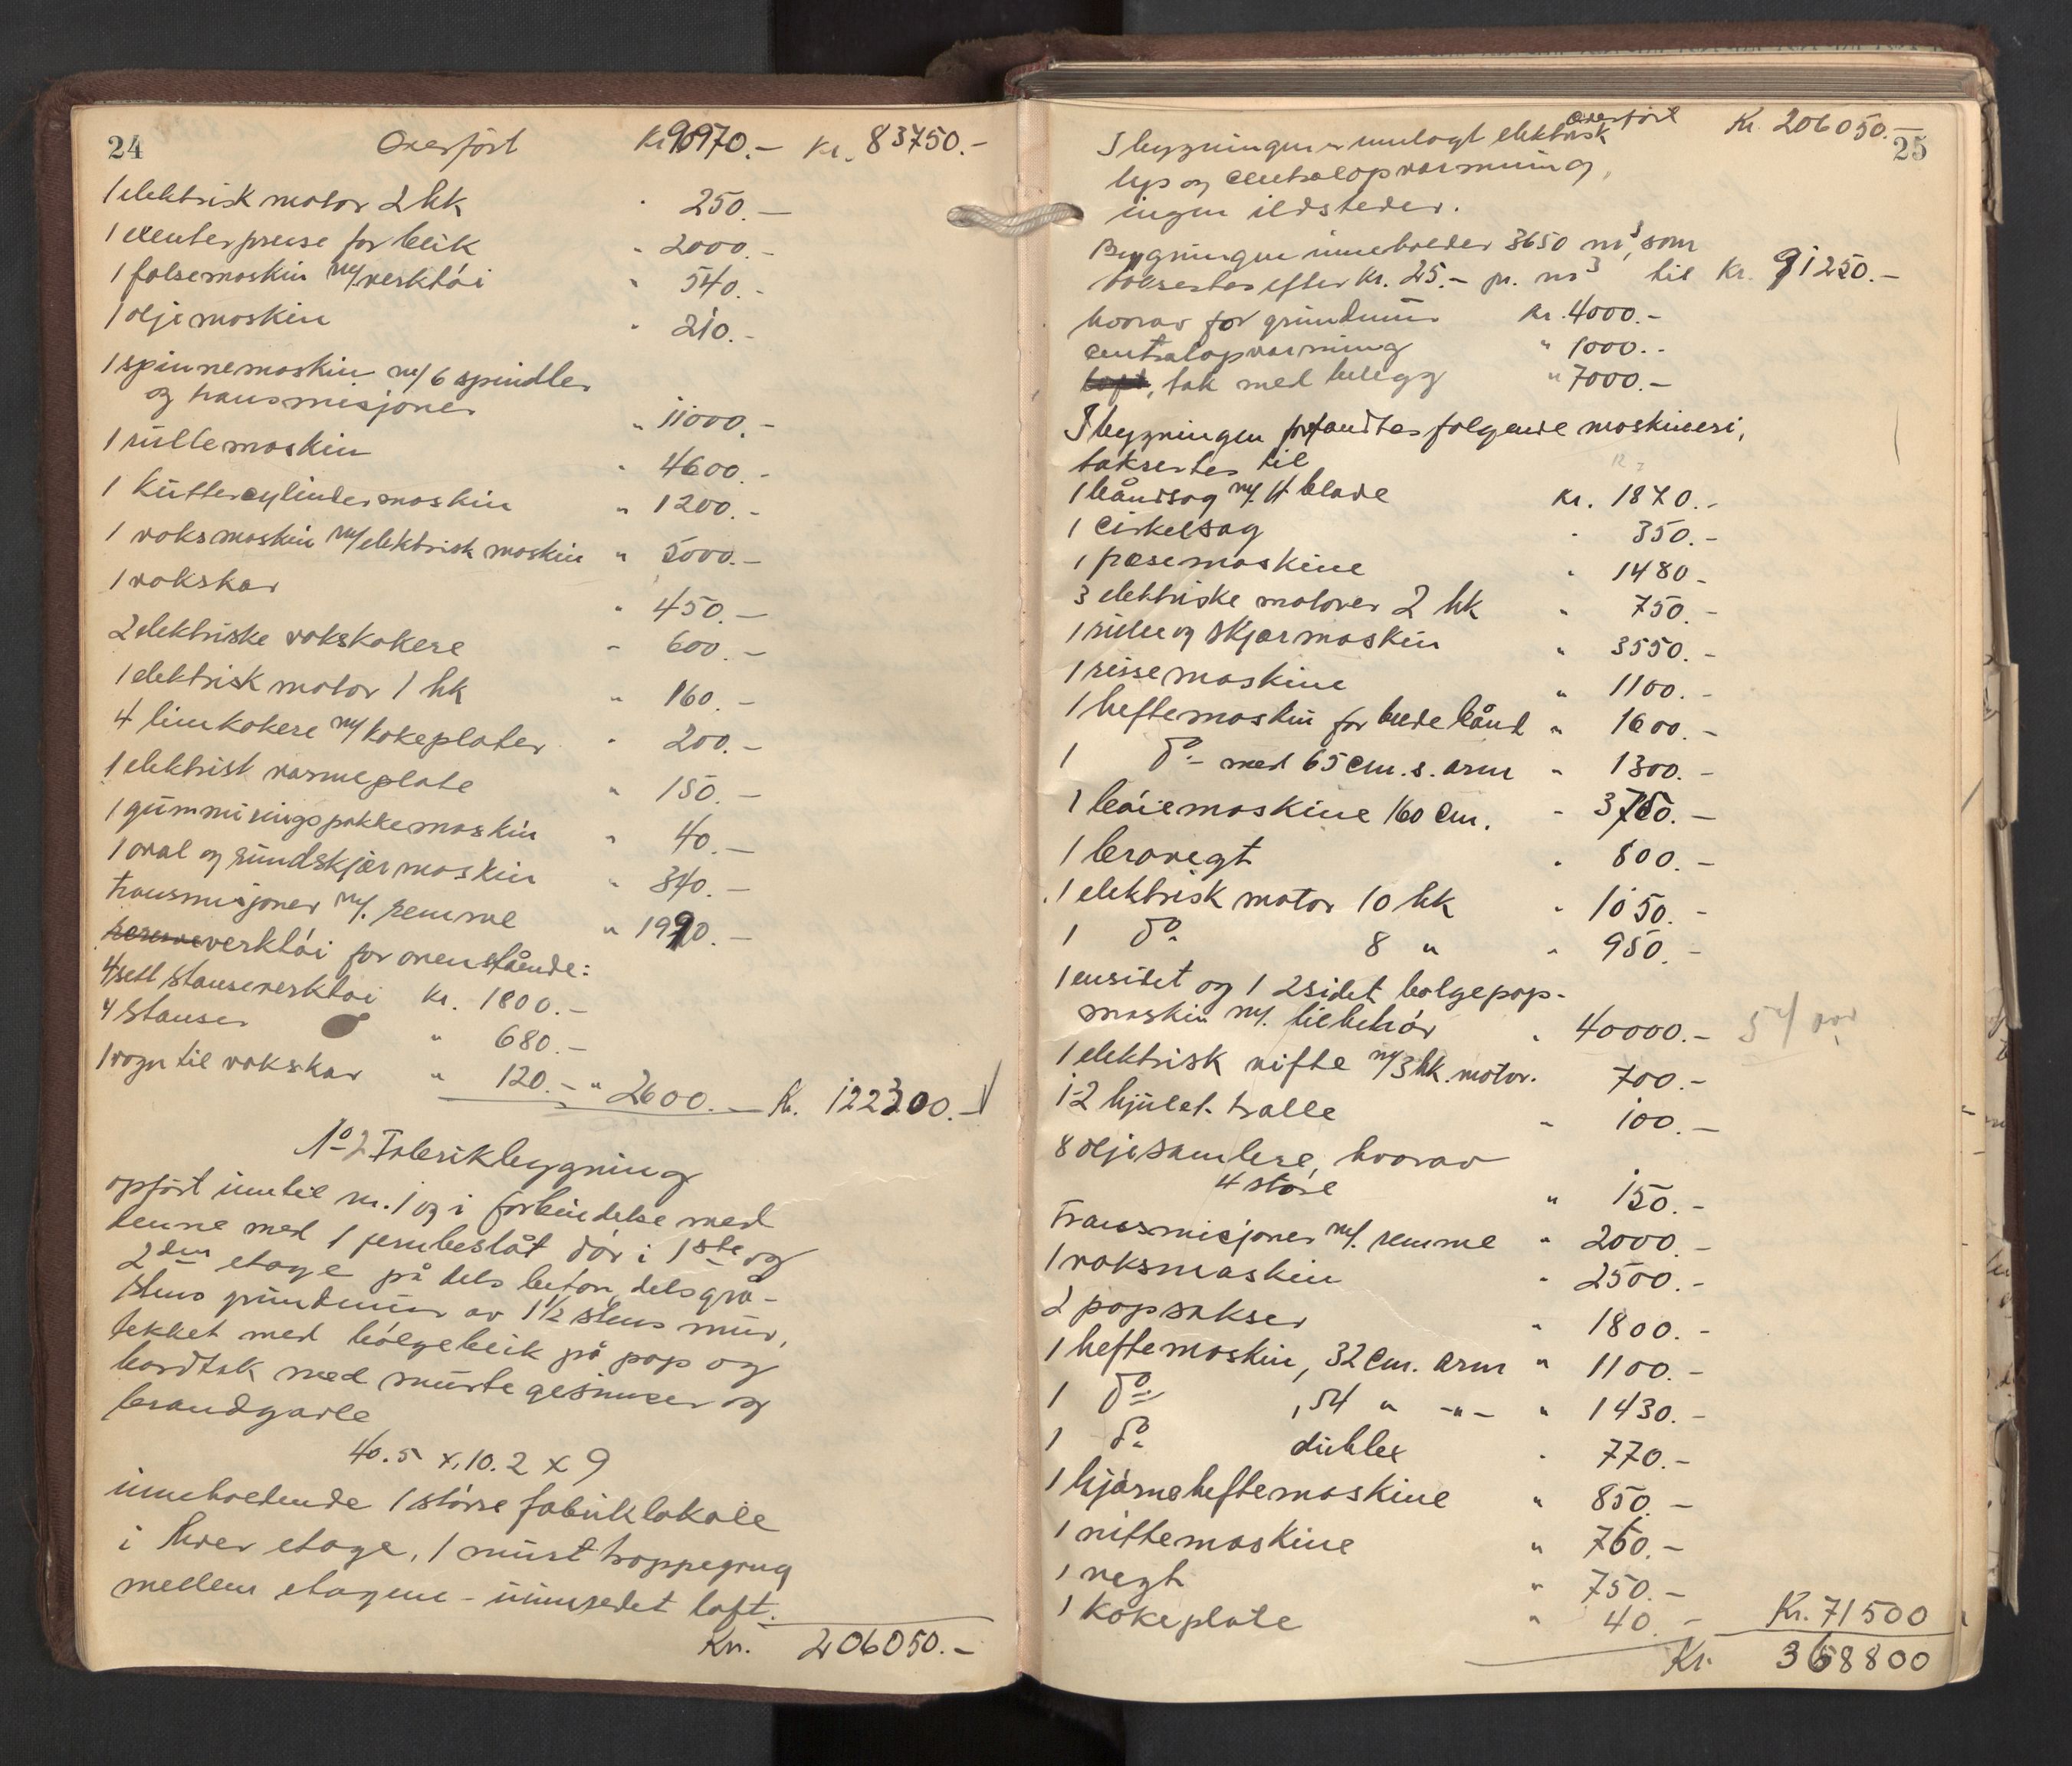 24
Overført Kr. 90970.- Kr. 83750.-
1 elektrisk motor 2 hk " 250.-
1 exenterpresse for blik " 2000.-
1 falsemaskin m/verktøi " 540.-
1 oljemaskin " 210.-
1 spinnemaskin m/6 spindler
og transmisjoner " 11000.-
1 rullemaskin " 4600.-
1 Kuttercylindermaskin " 1200.-
1 voksmaskin m/elektrisk maskin " 5000.-
1 vokskar " 450.-
2 elektriske vokskokere " 600.-
1 elektrisk motor 1 hk " 160.-
4 limkokere m/kokeplater " 200.-
1 elektrisk varmeplate " 150.-
1 gummiringspakkemaskin " 40.-
1 oval og rundskjærmaskin " 340.-
transmisjoner m/. remme " 1990.-
verktøi for ovenstående:
4 sett stanseverktøi Kr. 1800.-
4 stanser " 680.-
1 vogn til vokskar " 120.- " 2600.- Kr. 122300.-
No 2 Fabrikbygning
opført inntil nr. 1 og i forbindelse med
denne med 1 jernbeslåt dør i 1ste og
2den etage på dels beton, dels grå-
stens grundmur av 1½ stens mur,
tekket med bølgeblik på pap og
bordtak med murte gesimser og
brandgavle
40.5 x 10.2 x 9
inneholdende 1 større fabriklokale
i hver etage, 1 murt trappegang
mellem etagene - uinnredet loft.
Kr. 206050.-
25
overført Kr. 206050.-
I bygningen er innlagt elektrisk
lys og centralopvarmning,
ingen ildsteder.
Bygningen inneholder 3650 m³, som
takseres efter kr. 25.- pr. m³ til Kr. 91250.-
hvorav for grundmur Kr. 4000.-
centralopvarming " 1000.-
tak med belegg " 7000.-
I bygningen forfandtes følgende maskineri,
taksertes til
1 båndsag m/. 4 blade Kr. 1870.-
1 cirkelsag " 350.-
1 fræsemaskine " 1480.-
3 elektriske motorer 2 hk " 750.-
1 rulle og skjærmaskin " 3550.-
1 rissemaskine " 1100.-
1 heftemaskin for brede bånd " 1600.-
1 do. med 65 cm. s. arm " 1300.-
1 bøiemaskine 160 cm. " 3750.-
1 brovegt " 800.-
1 elektrisk motor 10 hk " 1050.-
1 do. 8 " " 950.-
1 ensidet og 1 2sidet bølgepap-
maskin m/. tilbehør " 40000.-
1 elektrisk vifte m/3 hk. motor. 700.-
1 2 hjulet tralle " 100.-
8 oljesamlere, hvorav
4 støre " 150.-
Transmisjoner m/. remme " 2000.-
1 voksmaskin " 2500.-
2 papsakser " 1800.-
1 heftemaskin, 32 cm. arm " 1100.-
1 do. , 54 " -"- " 1430.-
1 do. dublex " 770.-
1 hjørneheftemaskine " 850.-
1 niftemaskine " 760.-
1 vegt " 750.-
1 kokeplate " 40.- Kr. 71500
Kr. 368800